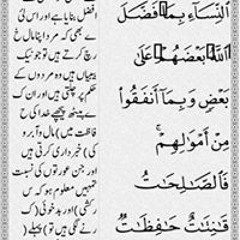 ٱلنِّسَآءِ بِمَا فَضَّلَ
ٱللَّهُ بَعْضَهُمْ عَلَىٰ
بَعْضٍ وَبِمَآ أَنفَقُوا۟
مِنْ أَمْوَٰلِهِمْ ۚ
فَٱلصَّٰلِحَٰتُ
قَٰنِتَٰتٌ حَٰفِظَٰتٌ
افضل بنایا ہے اور اس لئے
بھی کہ مرد اپنا مال خ
رچ کرتے ہیں تو جو نیک
بیبیاں ہیں وہ مردوں کے
حکم پر چلتی ہیں اور ان ک
ے پیٹھ پیچھے خدا کی ح
فاظت میں (مال وآبرو
کی) خبرداری کرتی ہیں
اور جن عورتوں کی نسبت
تمہیں معلوم ہو کہ س
رکشی (اور بدخوئی) ک
رنے لگی ہیں تو (پہلے)